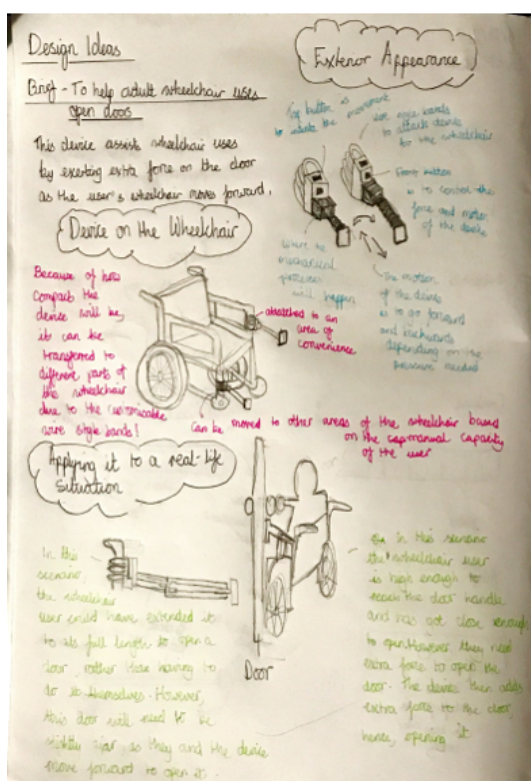 Design Ideas
Brief - To help adult wheelchair uses
open doors
This device assists wheelchair uses
by exerting extra force on the door
as the user's wheelchair moves forward.
Exterior Appearance
Top button is
to initiate the movement
wire style bands
to attach device
to the wheelchair
Front button
is to control the
force and motion
of the device
Where the
mechanical
processes
will happen
The motion
of the device
is to go forward
and backwards
depending on the
pressure needed
Device on the Wheelchair
Because of how
compact the
device will be,
it can be
transferred to
different parts of
the wheelchair
due to the removable
wire style bands!
attached to an
area of
convenience
Can be moved to other areas of the wheelchair based
on the manual capacity
of the user
Applying it to a real-life
situation
In this
scenario,
the wheelchair
user could have extended it
to its full length to open a
door rather than having to
do so themselves. However,
this door will need to be
slightly ajar, as they and the device
move forward to open it.
Door
In this scenario
the wheelchair user
is high enough to
reach the door handle
and has got close enough
to open. However they need
extra force to open the
door. The device then adds
extra force to the door,
hence, opening it.